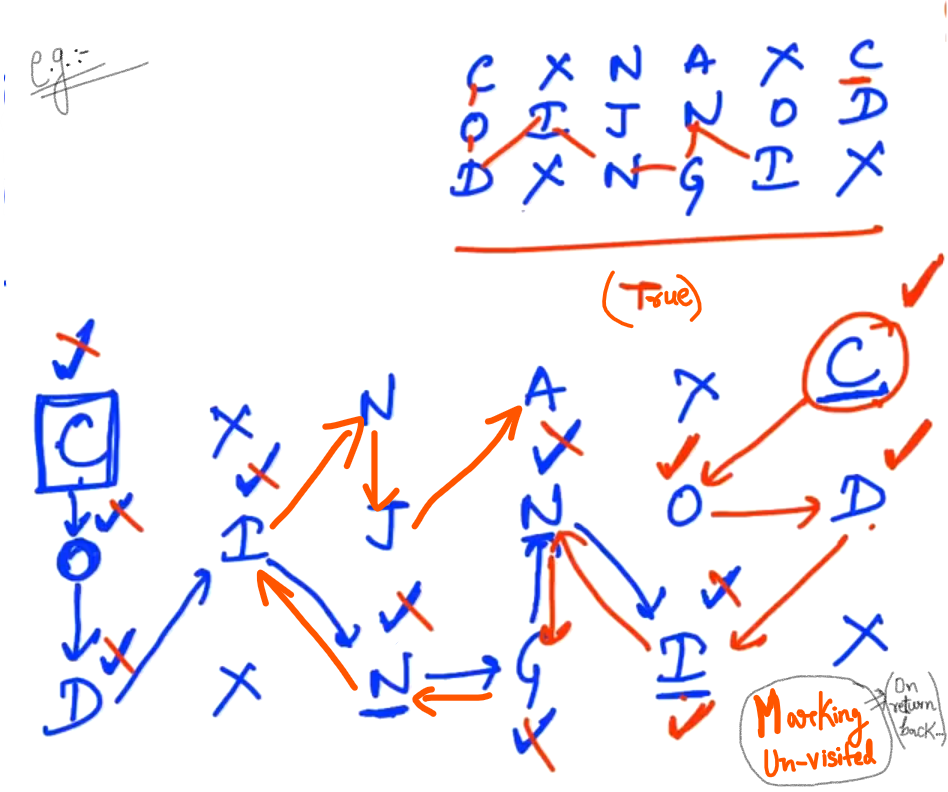 e.g.:-
C X N A X C
O I J N O D
D X N G I X
(True)
C X N A X C
O I J N O D
D X N G I X
Marking
Un-visited
(On
return
back...)